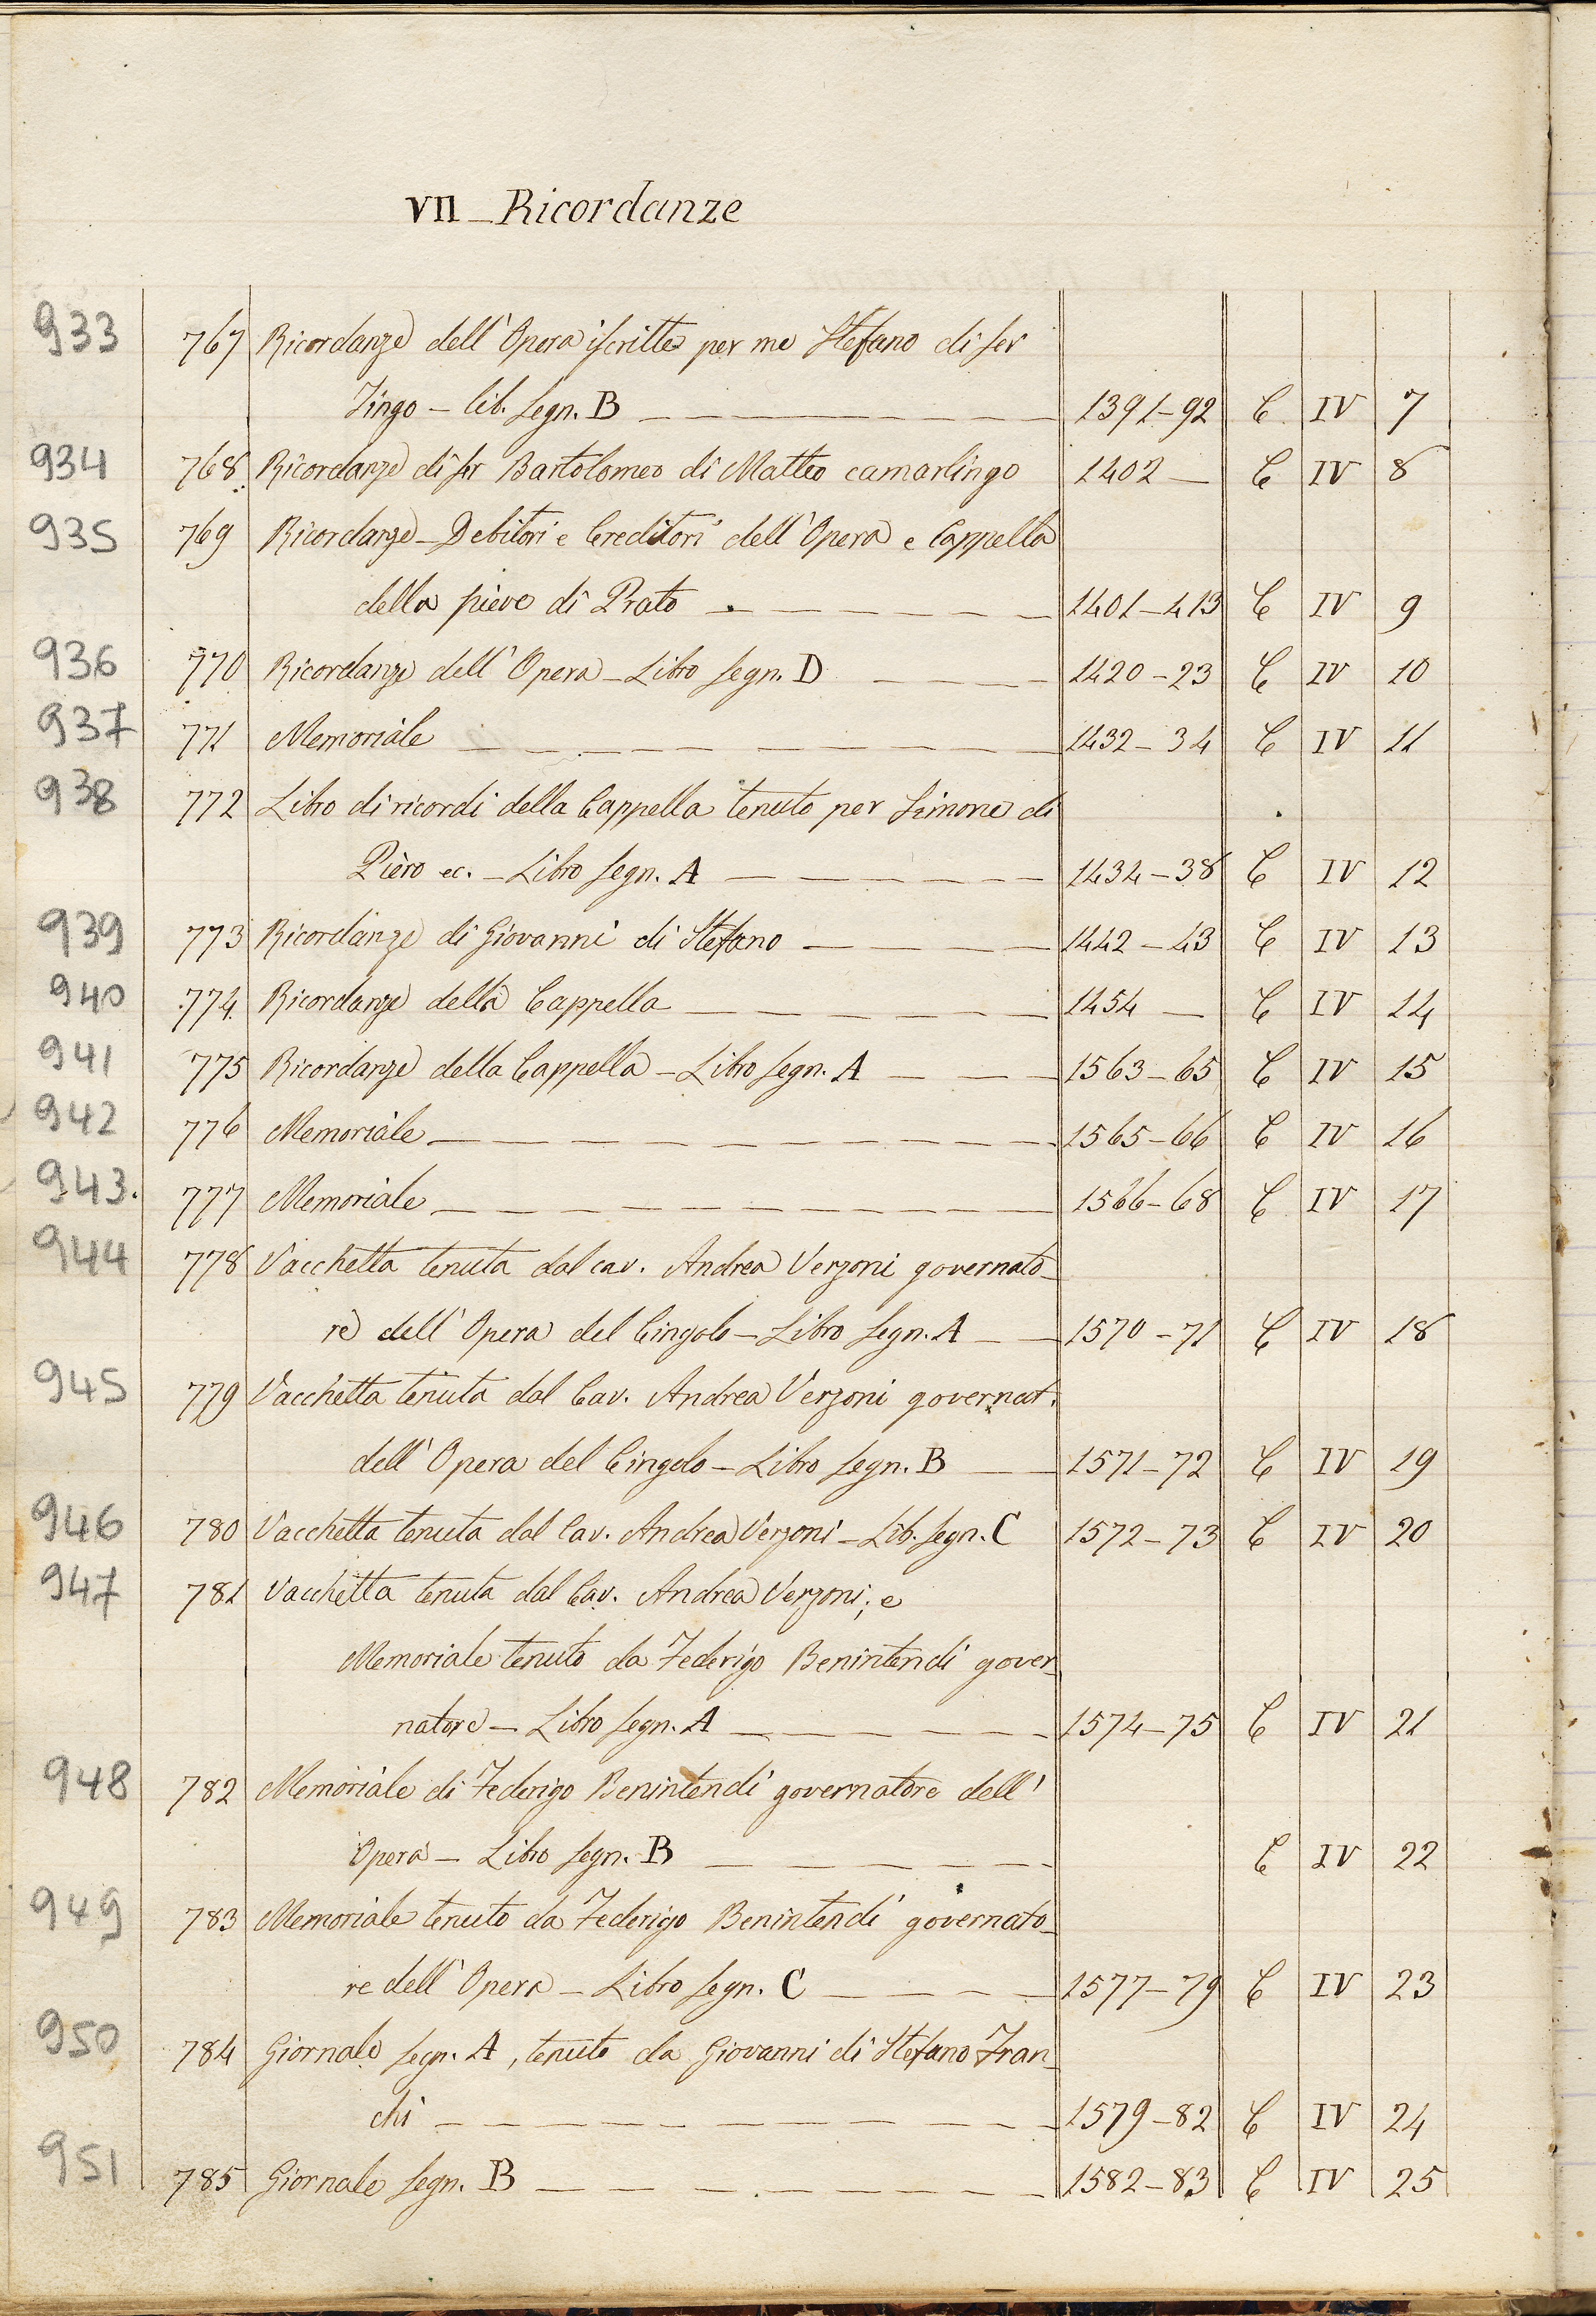 VII – Ricordanze
933 767 Ricordanze dell'Opera iscritte per me Stefano di ser
Tingo – lib. segn. B 1391–92 C IV 7
934 768 Ricordanze di ser Bartolomeo di Matteo camarlingo 1402 – C IV 8
935 769 Ricordanze – Debitori e Creditori dell'Opera e Cappella
della pieve di Prato 1401–413 C IV 9
936 770 Ricordanze dell'Opera – Libro segn. D 1420–23 C IV 10
937 771 Memoriale 1432–34 C IV 11
938 772 Libro di ricordi della Cappella tenuto per Simone di
Piero ec. – Libro segn. A 1434–38 C IV 12
939 773 Ricordanze di Giovanni di Stefano 1442–43 C IV 13
940 774 Ricordanze della Cappella 1454 – C IV 14
941 775 Ricordanze della Cappella – Libro segn. A 1563–65 C IV 15
942 776 Memoriale 1565–66 C IV 16
943. 777 Memoriale 1566–68 C IV 17
944 778 Vacchetta tenuta dal cav. Andrea Verzoni governato-
re dell'Opera del Cingolo – Libro segn. A 1570–71 C IV 18
945 779 Vacchetta tenuta dal Cav. Andrea Verzoni governat.
dell'Opera del Cingolo – Libro segn. B 1571–72 C IV 19
946 780 Vacchetta tenuta dal Cav. Andrea Verzoni – Lib. segn. C 1572–73 C IV 20
947 781 Vacchetta tenuta dal Cav. Andrea Verzoni; e
Memoriale tenuto da Federigo Benintendi gover-
natore – Libro segn. A 1574–75 C IV 21
948 782 Memoriale di Federigo Benintendi governatore dell'
Opera – Libro segn. B C IV 22
949 783 Memoriale tenuto da Federigo Benintendi governato-
re dell'Opera – Libro segn. C 1577–79 C IV 23
950 784 Giornale segn. A, tenuto da Giovanni di Stefano Fran-
chi 1579–82 C IV 24
951 785 Giornale segn. B 1582–83 C IV 25